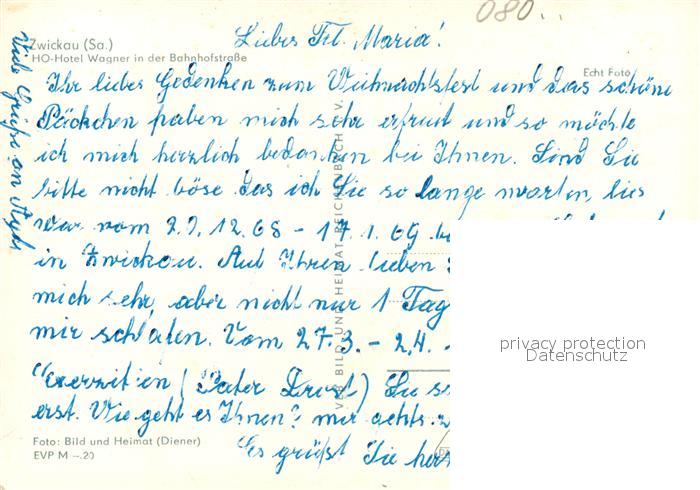 080..
Zwickau (Sa.)
HO-Hotel Wagner in der Bahnhofstraße
Echt Foto
Liebes Frl. Maria!
Ihr liebes Gedenken zum Weihnachtsfest und das schöne
Päckchen haben mich sehr erfreut und so möchte
ich mich herzlich bedanken bei Ihnen. Sind Sie
bitte nicht böse das ich Sie so lange warten lies
war vom 29.12.68 - 17.1.69
in Zwickau. Auf Ihren lieben
mich sehr aber nicht nur 1 Tag
mir schlafen. Vom 27.3. - 2.4.
Exerzitien (Pater Drost) Sie
erst. Wie geht es Ihnen? mir gehts
Es grüßt Sie
Viele Grüße an
VEB BILD UND HEIMAT REICHENBACH i. V.
Foto: Bild und Heimat (Diener)
EVP M -.20
privacy protection
Datenschutz